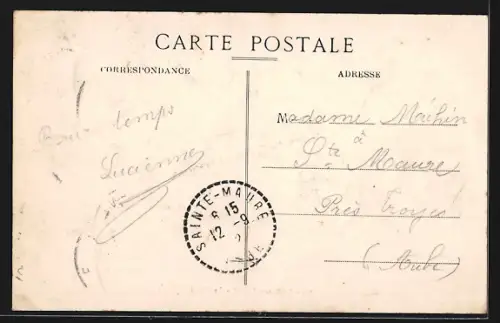 CARTE POSTALE
CORRESPONDANCE
ADRESSE
temps
Lucienne
Madame
à
Ste Maure
Près Troyes
(Aube)
SAINTE-MAURE
8 15
12 -9